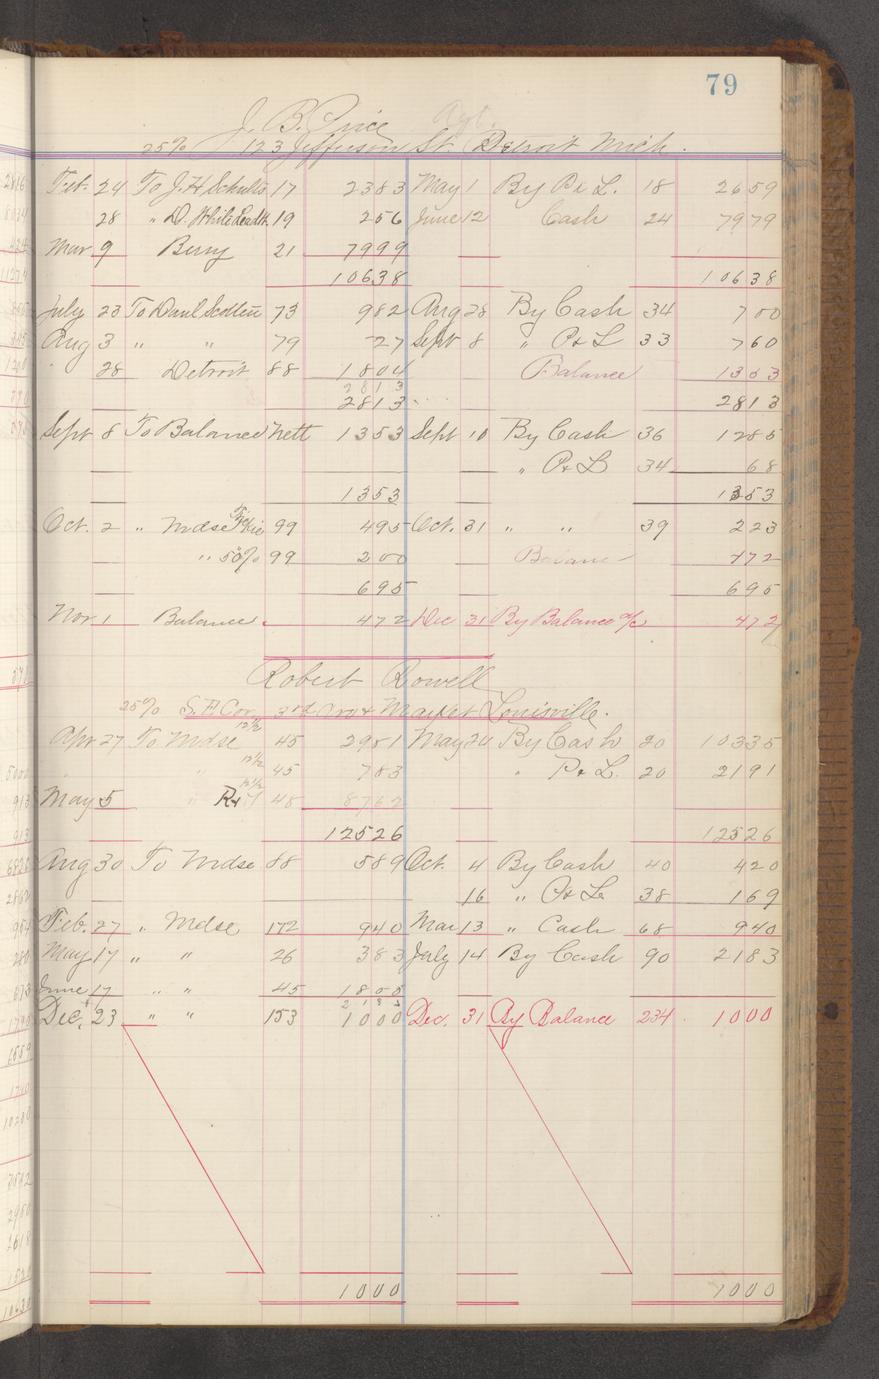 79
J. B. Price Agt.
25% 123 Jefferson St. Detroit Mich.
Feb. 24 To J. H. Schultz 17 2383 May 1 By P & L. 18 2659
28 " D. White Lead 19 256 June 12 Cash 24 7979
Mar 9 Berry 21 7999
10638 10638
July 23 To Danl Scotten 73 982 Aug 28 By Cash 34 700
Aug 3 " " 79 27 Sept 8 " P & L 33 760
28 Detroit 88 1804 Balance 1353
2813
2813 2813
Sept 8 To Balance nett 1353 Sept 10 By Cash 36 1285
" P & L 34 68
1353 1353
Oct. 2 " Mdse 99 495 Oct. 31 " " 39 223
" 50% 99 200 Balance 472
695 695
Nov. 1 Balance 472 Dec 31 By Balance a/c 472
Robert Rowell
25% S. E. Cor 3rd & Market Louisville.
Apr 27 To Mdse 12½ 45 2981 May 24 By Cash 20 10335
" 12½ 45 783 " P & L. 20 2191
May 5 " 12½ 48 8762
12526 12526
Aug 30 To Mdse 88 589 Oct. 4 By Cash 40 420
16 " P & L 38 169
Feb. 27 " Mdse 172 940 Mar 13 " Cash 68 940
May 17 " " 26 383 July 14 By Cash 90 2183
June 17 " " 45 1800
2183
Dec. 23 " " 153 1000 Dec. 31 By Balance 234 1000
1000 1000